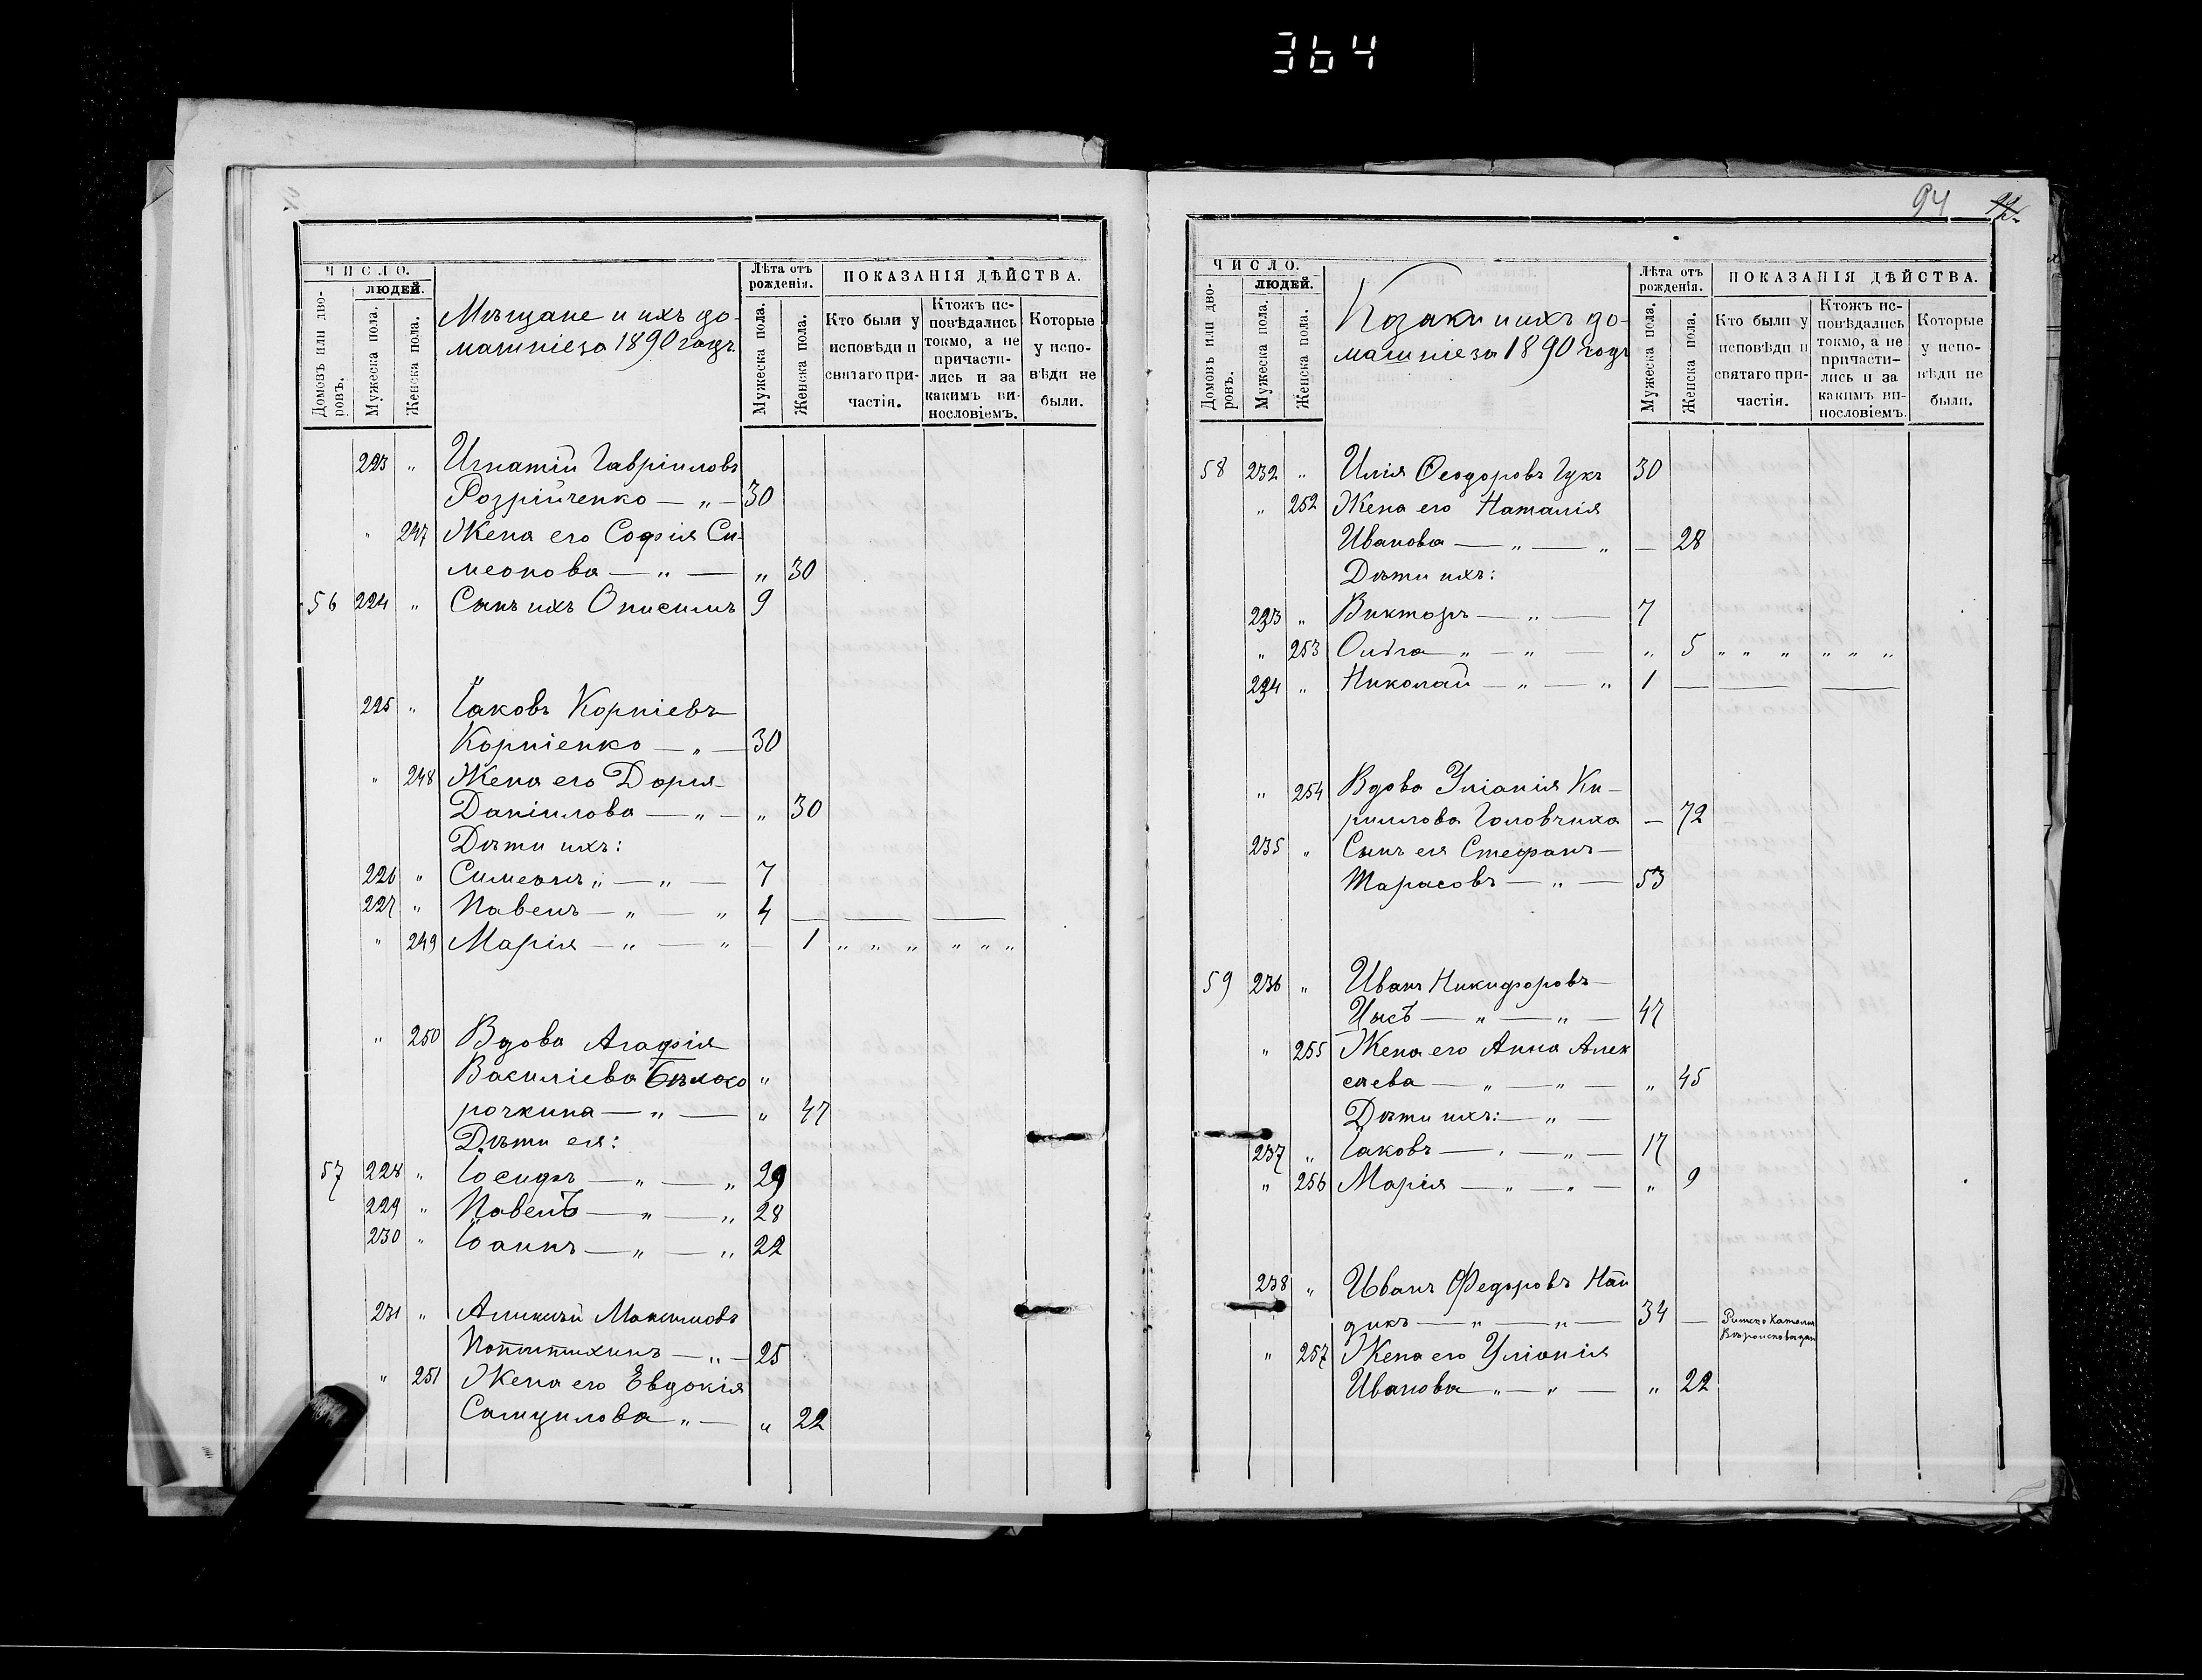 364
ЧИСЛО.
ЛЮДЕЙ.
Домовъ или дворовъ.
Мужеска пола.
Женска пола.
Мѣщане и ихъ до-
машніе за 1890 годъ.
Лѣта отъ рожденія.
Мужеска пола.
Женска пола.
ПОКАЗАНІЯ ДѢЙСТВА.
Кто были у исповѣди и святаго причастія.
Ктожъ исповѣдались токмо, а не причастились и за какимъ винословіемъ.
Которые у исповѣди не были.
223 „ Игнатій Гавріиловъ
Розрійченко — „ — 30
„ 247 Жена его Софія Си-
меонова — „ — „ 30
56 224 „ Сынъ ихъ Онисимъ 9
225 „ Іаковъ Корніевъ
Корніенко — „ — 30
„ 248 Жена его Дарія
Даніилова — „ — „ 30
Дѣти ихъ:
226 „ Симеонъ „ — „ — 7
227 „ Павелъ — „ — „ 4 — — —
„ 249 Марія — „ — „ — 1 „ „ „ „ „ „
„ 250 Вдова Агафія
Василіева Бѣлоко „
рочкина — „ — „ 47
Дѣти ея:
57 228 „ Іосифъ — „ — „ 29
229 „ Павелъ — „ — „ 28
230 „ Іоаннъ — „ — „ 22
231 „ Максимовъ
— „ — 25
„ 251 Жена его Евдокія
Самуилова „ — „ 22
94
ЧИСЛО.
ЛЮДЕЙ.
Домовъ или дворовъ.
Мужеска пола.
Женска пола.
Козаки и ихъ до-
машніе за 1890 годъ
Лѣта отъ рожденія.
Мужеска пола.
Женска пола.
ПОКАЗАНІЯ ДѢЙСТВА.
Кто были у исповѣди и святаго причастія.
Ктожъ исповѣдались токмо, а не причастились и за какимъ винословіемъ.
Которые у исповѣди не были.
58 232 „ Илія Ѳеодоровъ Гукъ 30
„ 252 Жена его Наталія
Иванова — „ — „ — 28
Дѣти ихъ:
233 „ Викторъ — „ — 7
„ 253 Ольга „ — „ — „ 5 „ „ „ „ „ „
234 „ Николай — „ — „ 1 — — —
„ 254 Вдова Уліанія Ки-
риллова Головчиха — 72
235 „ Сынъ ея Стефанъ —
Тарасовъ — „ — 53
59 236 „ Иванъ Никифоровъ —
Цысь — „ — „ — 47
„ 255 Жена его Анна Алек
сѣева — „ — „ — „ 45
Дѣти ихъ: — „ —
237 „ Іаковъ — „ — „ — 17
„ 256 Марія — „ — „ — „ 9
238 „ Иванъ Федоровъ Най
дикъ — „ — „ — 34 — Римско Католич.
Вѣроисповѣдан
„ 257 Жена его Уліанія
Иванова „ — „ — „ 22